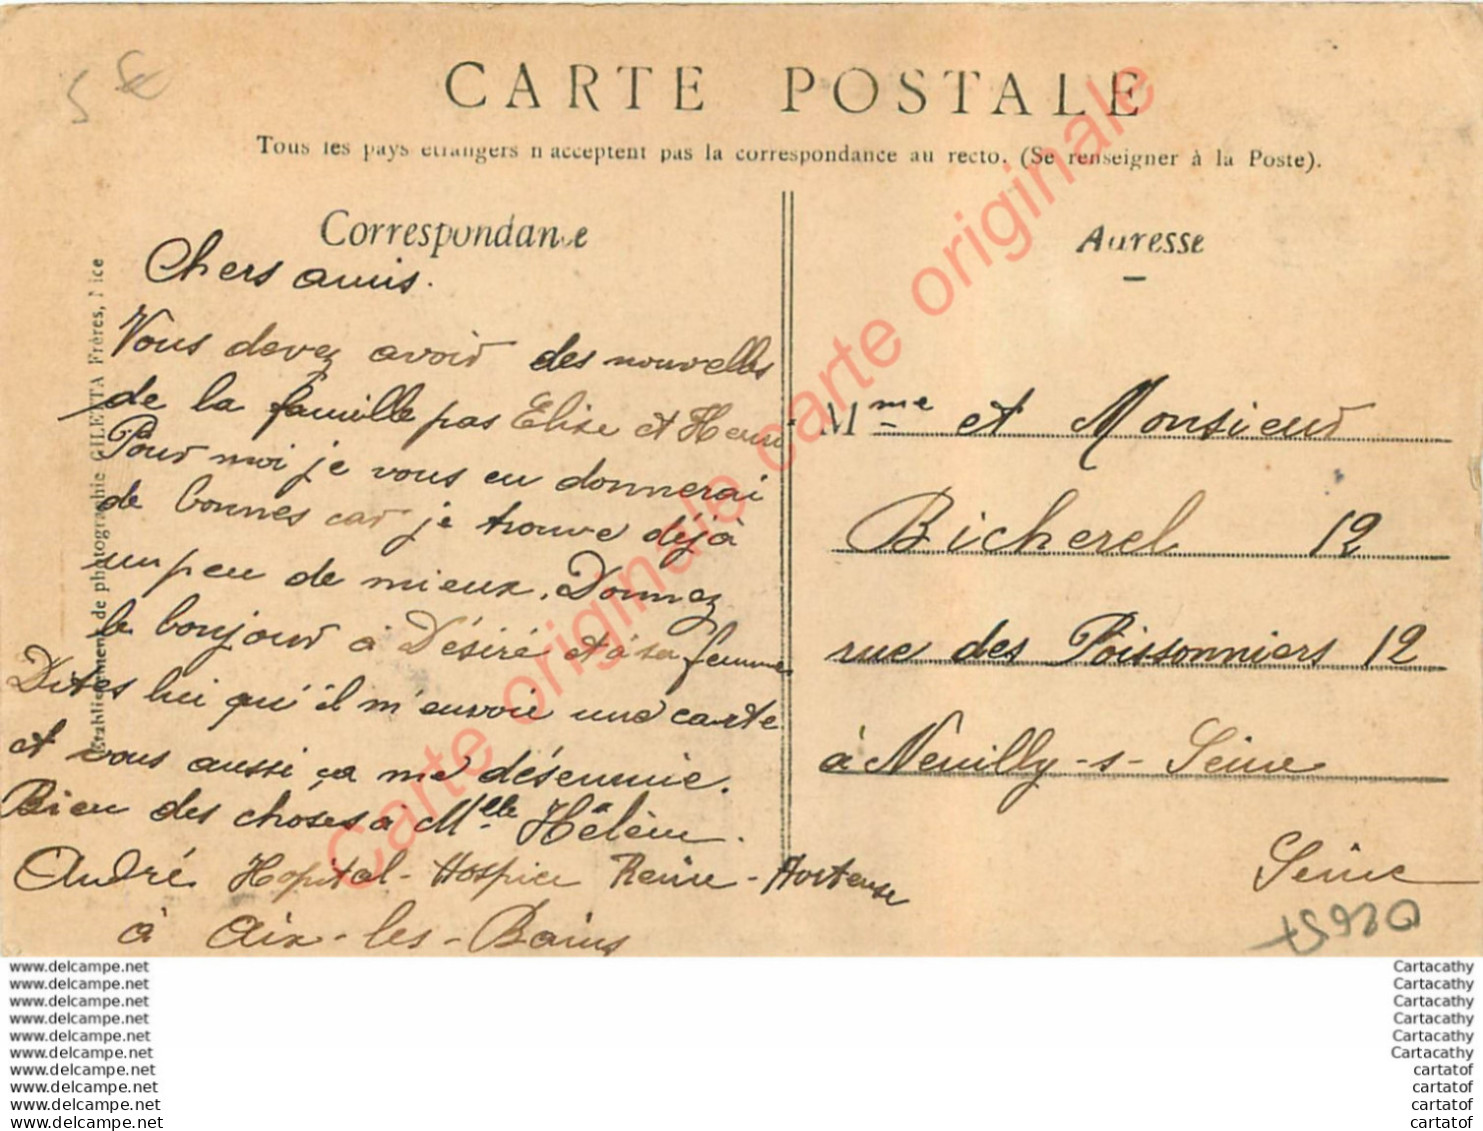 5 €
CARTE POSTALE
Tous les pays étrangers n'acceptent pas la correspondance au recto. (Se renseigner à la Poste).
Correspondance
Chers amis.
Vous devez avoir des nouvelles
de la famille pas Elise et Henri
Pour moi je vous en donnerai
de bonnes car je trouve déjà
un peu de mieux. Donnez
le bonjour à Désiré et à sa femme
Dites lui qu'il m'envoie une carte
et vous aussi ça me désennuie.
Bien des choses à Mlle Hélène.
André Hopital-Hospice Reine-Hortense
à Aix-les-Bains
Etablissements de photographie GILETTA Frères, Nice
Adresse
Mme et Monsieur
Bicherel 12
rue des Poissonniers 12
à Neuilly-s-Seine
Seine
Carte originale carte originale
www.delcampe.net
www.delcampe.net
www.delcampe.net
www.delcampe.net
www.delcampe.net
www.delcampe.net
www.delcampe.net
www.delcampe.net
www.delcampe.net
www.delcampe.net
Cartacathy
Cartacathy
Cartacathy
Cartacathy
Cartacathy
Cartacathy
cartatof
cartatof
cartatof
cartatof